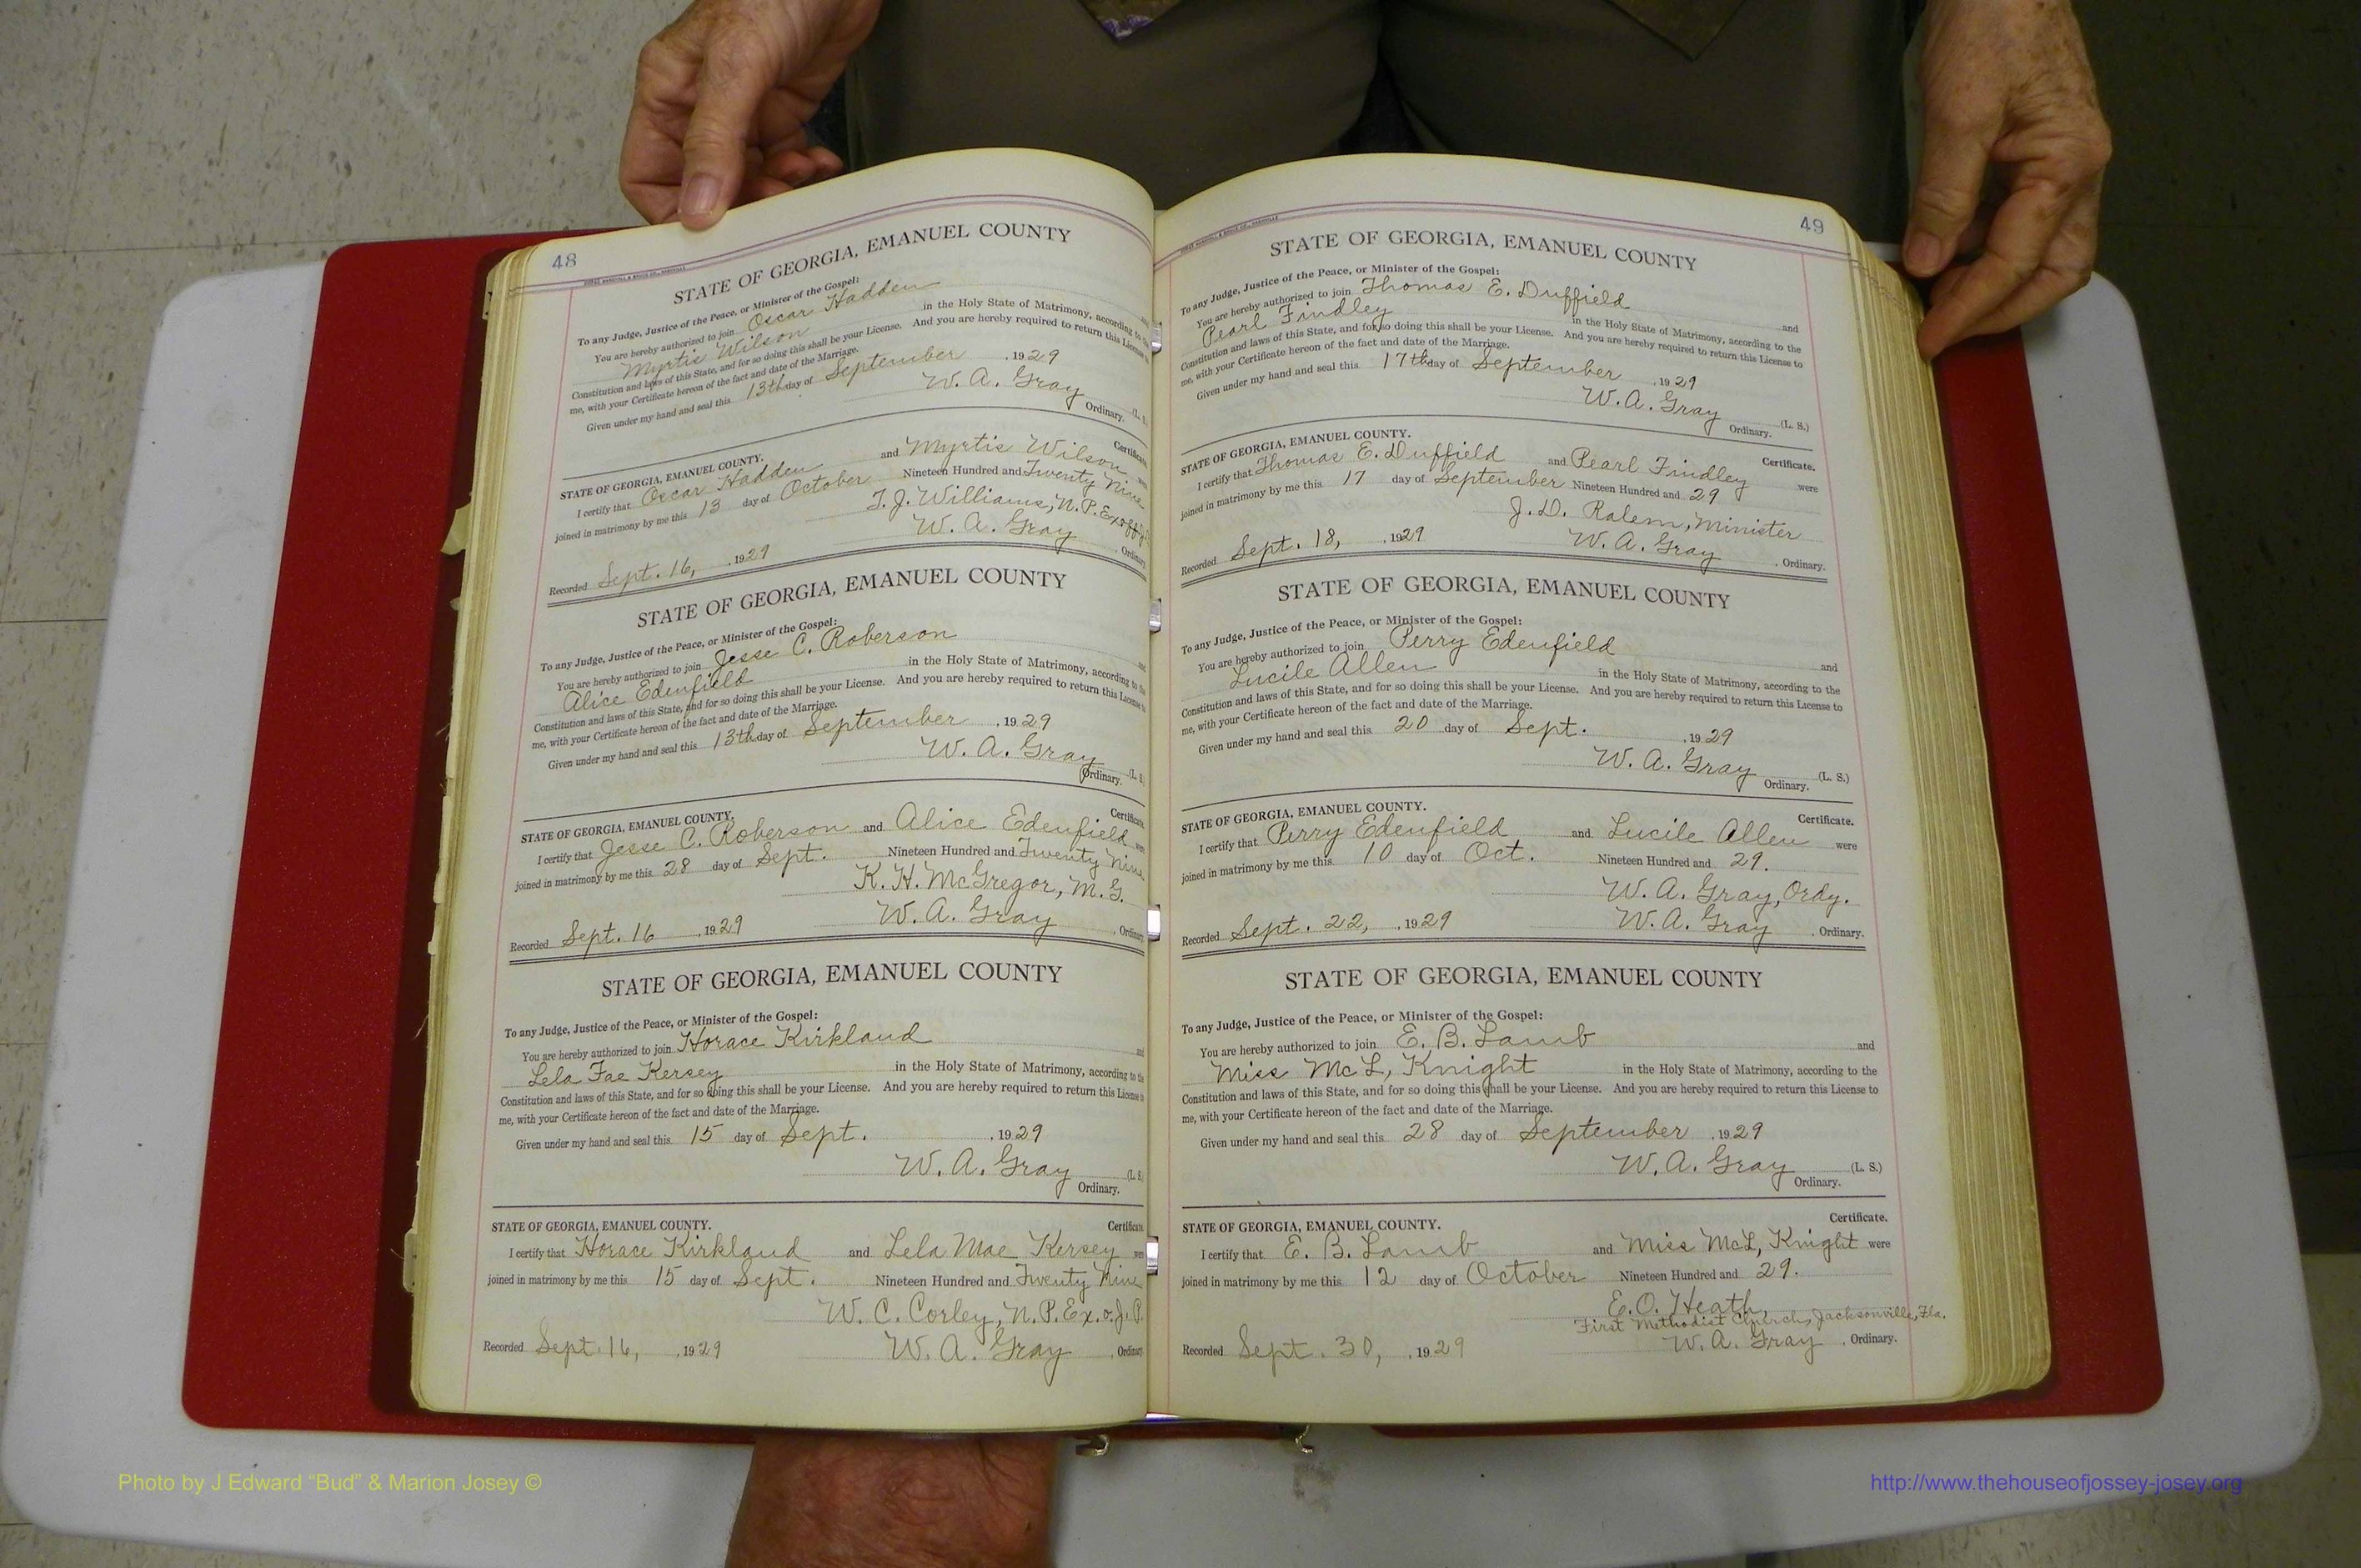 48
STATE OF GEORGIA, EMANUEL COUNTY
To any Judge, Justice of the Peace, or Minister of the Gospel:
You are hereby authorized to join Oscar Hadden
Myrtis Wilson in the Holy State of Matrimony, according to the
Constitution and laws of this State, and for so doing this shall be your License. And you are hereby required to return this License to
me, with your Certificate hereon of the fact and date of the Marriage.
Given under my hand and seal this 13th day of September , 1929
W. A. Gray (L. S.
Ordinary.
STATE OF GEORGIA, EMANUEL COUNTY. Certificate.
I certify that Oscar Hadden and Myrtis Wilson
joined in matrimony by me this 13 day of October Nineteen Hundred and Twenty Nine
T. J. Williams, N. P. Exoff
Recorded Sept. 16, , 1929 W. A. Gray , Ordinary.
STATE OF GEORGIA, EMANUEL COUNTY
To any Judge, Justice of the Peace, or Minister of the Gospel:
You are hereby authorized to join Jesse C. Roberson and
Alice Edenfield in the Holy State of Matrimony, according to the
Constitution and laws of this State, and for so doing this shall be your License. And you are hereby required to return this License to
me, with your Certificate hereon of the fact and date of the Marriage.
Given under my hand and seal this 13th day of September , 1929
W. A. Gray (L. S
Ordinary.
STATE OF GEORGIA, EMANUEL COUNTY. Certificate.
I certify that Jesse C. Roberson and Alice Edenfield were
joined in matrimony by me this 28 day of Sept. Nineteen Hundred and Twenty Nine
K. H. McGregor, M. G.
Recorded Sept. 16 , 1929 W. A. Gray , Ordinary
STATE OF GEORGIA, EMANUEL COUNTY
To any Judge, Justice of the Peace, or Minister of the Gospel:
You are hereby authorized to join Horace Kirkland and
Lela Fae Kersey in the Holy State of Matrimony, according to the
Constitution and laws of this State, and for so doing this shall be your License. And you are hereby required to return this License to
me, with your Certificate hereon of the fact and date of the Marriage.
Given under my hand and seal this 15 day of Sept. , 1929
W. A. Gray (L. S.
Ordinary.
STATE OF GEORGIA, EMANUEL COUNTY. Certificate.
I certify that Horace Kirkland and Lela Mae Kersey were
joined in matrimony by me this 15 day of Sept. Nineteen Hundred and Twenty Nine
W. C. Corley, N. P. Ex. o. J. P.
Recorded Sept. 16, , 1929 W. A. Gray , Ordinary
49
STATE OF GEORGIA, EMANUEL COUNTY
To any Judge, Justice of the Peace, or Minister of the Gospel:
You are hereby authorized to join Thomas E. Duffield and
Pearl Findley in the Holy State of Matrimony, according to the
Constitution and laws of this State, and for so doing this shall be your License. And you are hereby required to return this License to
me, with your Certificate hereon of the fact and date of the Marriage.
Given under my hand and seal this 17th day of September , 1929
W. A. Gray (L. S.)
Ordinary.
STATE OF GEORGIA, EMANUEL COUNTY. Certificate.
I certify that Thomas E. Duffield and Pearl Findley were
joined in matrimony by me this 17 day of September Nineteen Hundred and 29
J. D. Ralem, Minister
Recorded Sept. 18, , 1929 W. A. Gray , Ordinary.
STATE OF GEORGIA, EMANUEL COUNTY
To any Judge, Justice of the Peace, or Minister of the Gospel:
You are hereby authorized to join Perry Edenfield and
Lucile Allen in the Holy State of Matrimony, according to the
Constitution and laws of this State, and for so doing this shall be your License. And you are hereby required to return this License to
me, with your Certificate hereon of the fact and date of the Marriage.
Given under my hand and seal this 20 day of Sept. , 1929
W. A. Gray (L. S.)
Ordinary.
STATE OF GEORGIA, EMANUEL COUNTY. Certificate.
I certify that Perry Edenfield and Lucile Allen were
joined in matrimony by me this 10 day of Oct. Nineteen Hundred and 29.
W. A. Gray, Ordy.
Recorded Sept. 22, , 1929 W. A. Gray , Ordinary.
STATE OF GEORGIA, EMANUEL COUNTY
To any Judge, Justice of the Peace, or Minister of the Gospel:
You are hereby authorized to join E. B. Lamb and
Miss McL, Knight in the Holy State of Matrimony, according to the
Constitution and laws of this State, and for so doing this shall be your License. And you are hereby required to return this License to
me, with your Certificate hereon of the fact and date of the Marriage.
Given under my hand and seal this 28 day of September , 1929
W. A. Gray (L. S.)
Ordinary.
STATE OF GEORGIA, EMANUEL COUNTY. Certificate.
I certify that E. B. Lamb and Miss McL, Knight were
joined in matrimony by me this 12 day of October Nineteen Hundred and 29.
E. O. Heath,
First Methodist Church, Jacksonville, Fla.
Recorded Sept. 30, , 1929 W. A. Gray , Ordinary.
Photo by J Edward “Bud” & Marion Josey ©
http://www.thehouseofjossey-josey.org